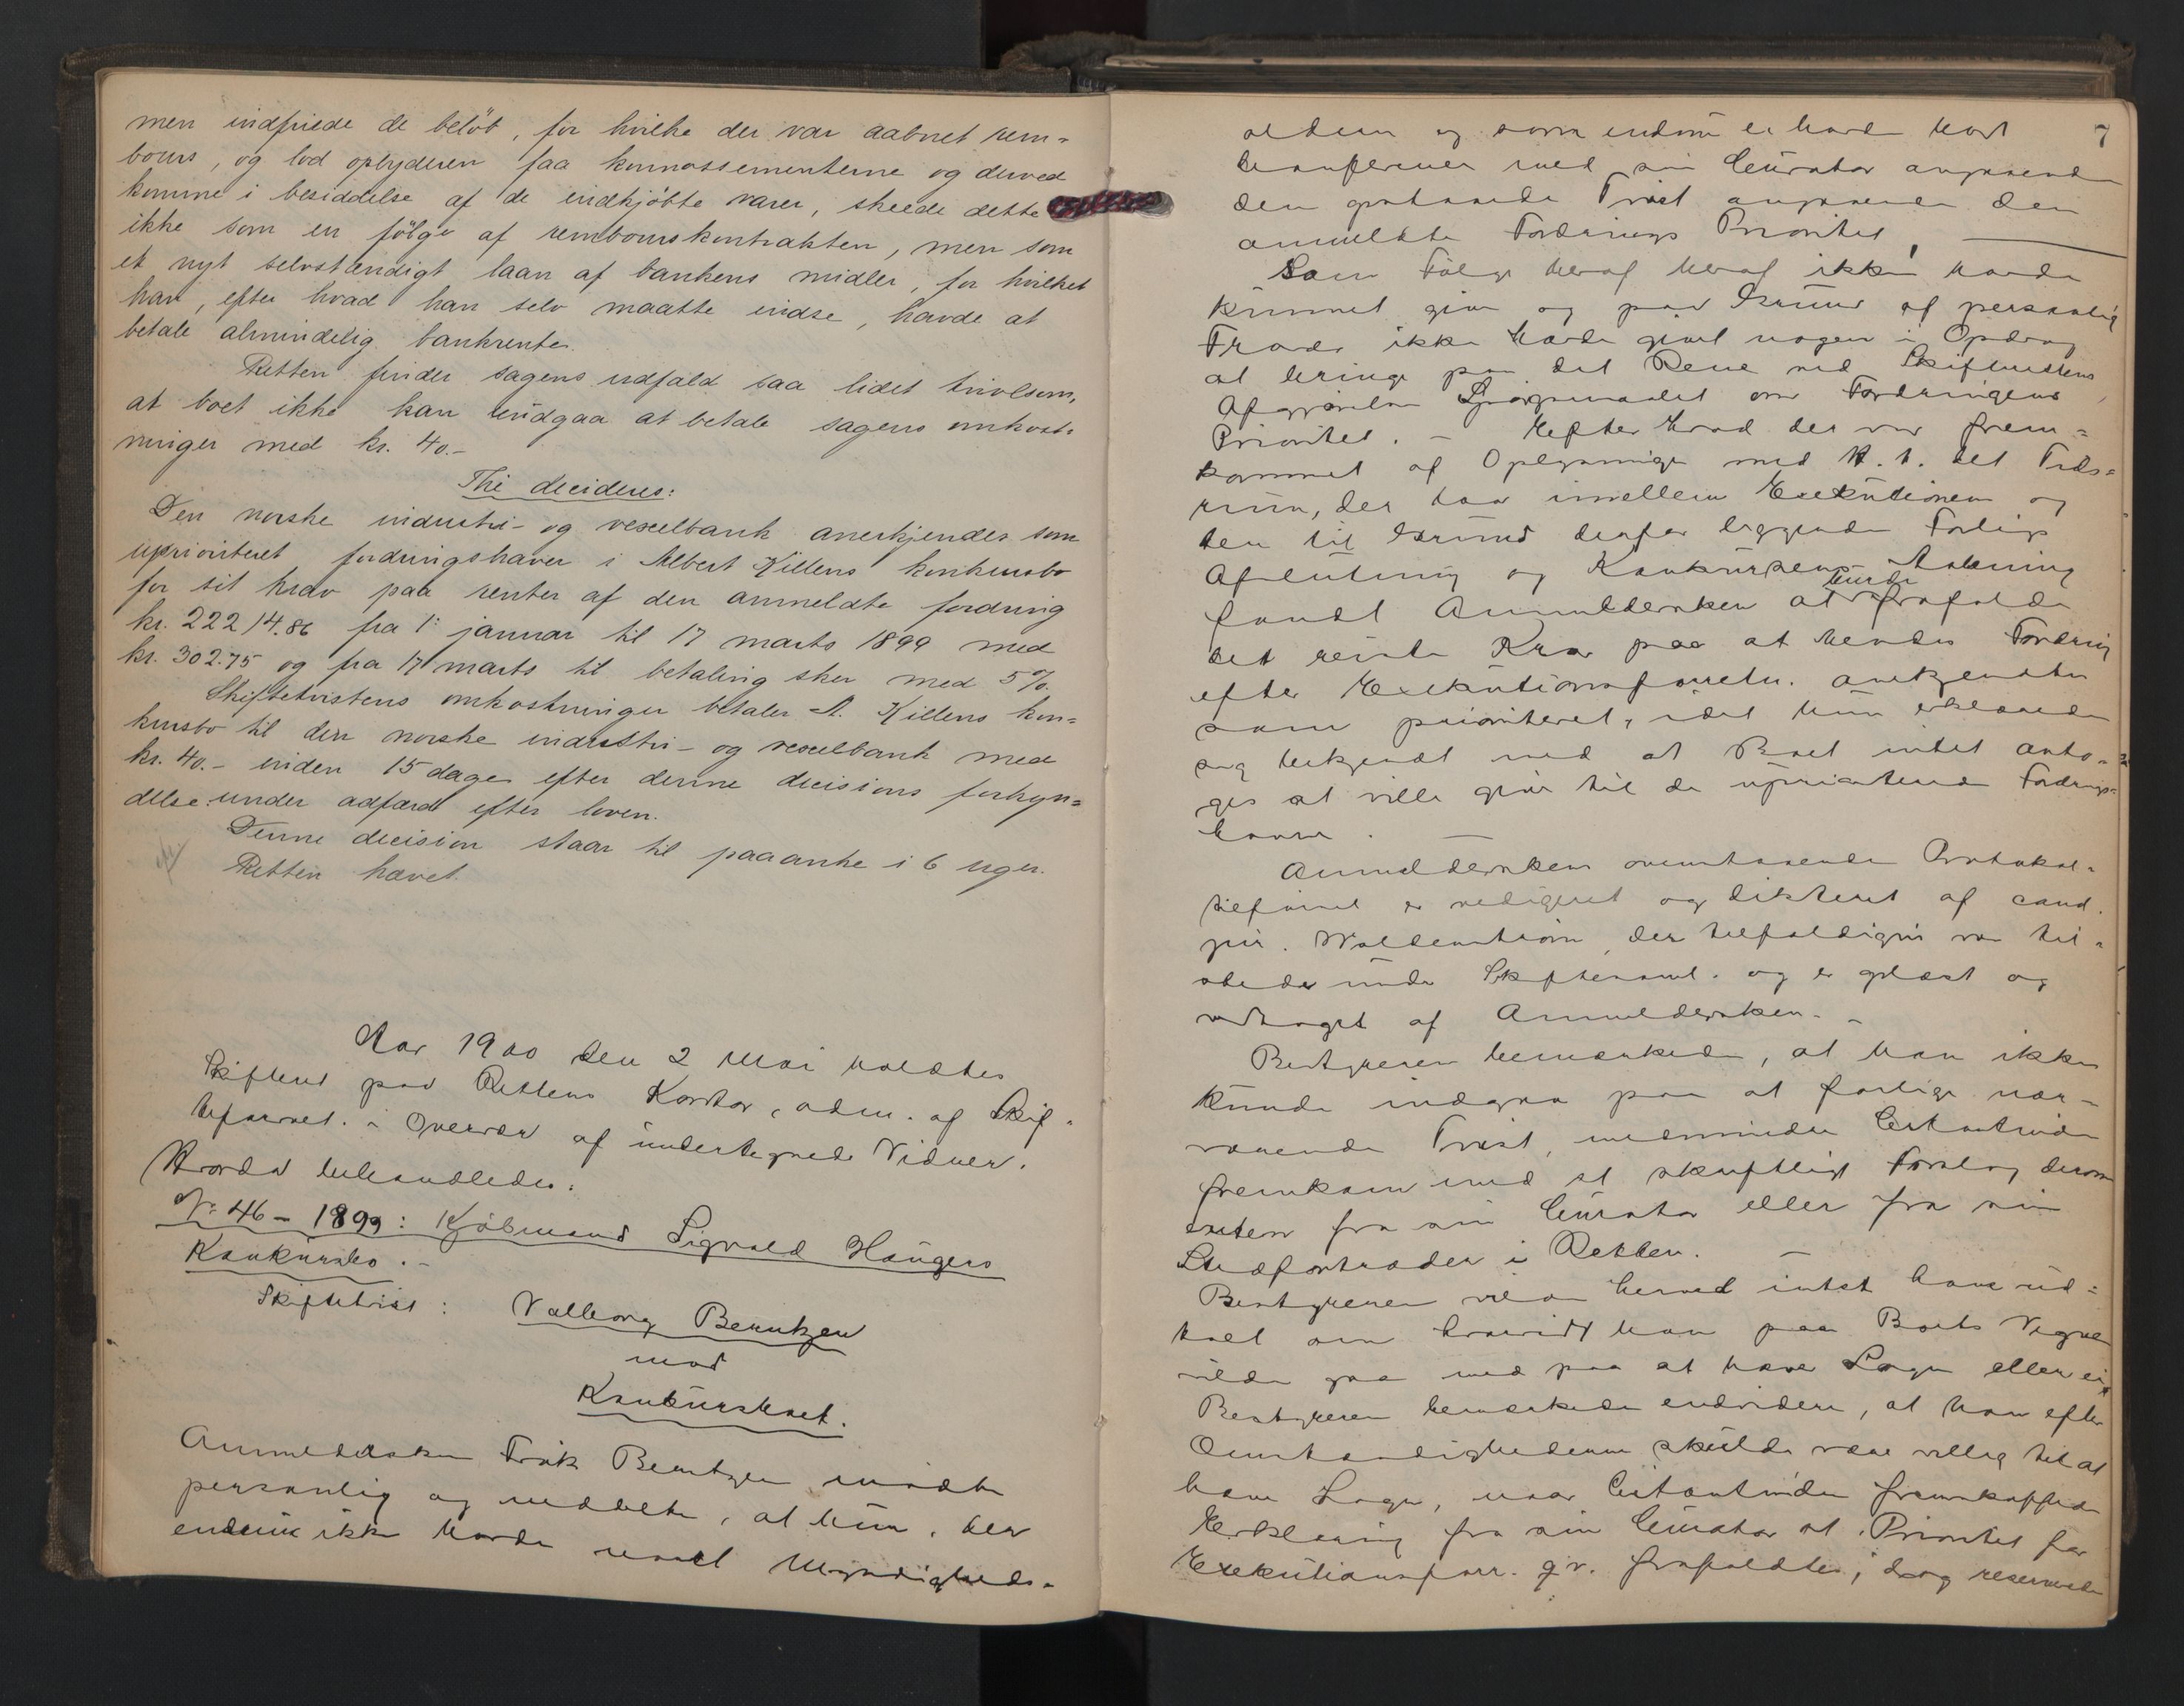 men indfriede de beløb, for hvilke der var aabnet rem=
bours, og lod opbyderen faa konnossementerne og derved
komme i besiddelse af de indkjøbte varer, skeede dette
ikke som en følge af rembourskontrakten, men som
et nyt selvstændigt laan af bankens midler, for hvilket
han, efter hvad han selv maatte indse, havde at
betale almindelig bankrente.
Retten finder sagens udfald saa lidet tvivlsom,
at boet ikke kan undgaa at betale sagens omkost-
ninger med kr. 40.-
Thi decideres:
Den norske industri- og vexelbank anerkjendes som
uprioriteret fordringshaver i Albert Killens konkursbo
for sit krav paa renter af den anmeldte fordring
kr. 22214.86 fra 1. januar til 17 marts 1899 med
kr. 302.75 og fra 17 marts til betaling sker med 5%.
Skiftetvistens omkostninger betaler A. Killens kon=
kursbo til den norske industri- og vexelbank med
kr. 40.- inden 15 dage efter denne decisions forkyn=
delse under adfærd efter loven.
Denne decision staar til paaanke i 6 uger.
Retten hævet.
Aar 1900 den 2 Mai holdtes
Skifteret paa Rettens Kontor, adm. af Skif-
teforvalt. i Overvær af undertegnede Vidner.
Hvorda behandledes:
No 46 - 1899: Kjøbmand Sigvald Haugers
Konkursbo.-
Skiftetvist: Valborg Berntzen
mod
Konkursboet.
Anmeldersken Frøk Berntzen mødte
personlig og meddelte, at hun, der
endnu ikke havde naaet Myndigheds-
7
alderen og som endnu ei havde havt
Konferencer med sin Curator angaaende
den paastaaede Tvist angaaende den
anmeldte Fordrings Prioritet,
Som Følge heraf heraf ikke havde
kunnet give og paa Grund af personlig
ikke havde givet nogen i Opdrag
at bringe paa det Rene ved Skifterettens
Afgjørelse Spørgsmaalet om Fordringens
Prioritet. - Efter hvad der var frem=
kommet af Oplysninger med H. t. det Tids=
rum, der laa imellem Exekutionen og
den til Grund derfor liggende Forligs
Afslutning og Konkursens Aabning
fandt Anmeldersken at burde frafalde
det reiste Krav paa at hendes Fordring
efter Exekutionsforretn. anerkjendtes
som prioriteret, idet hun erklærede
sig bekjendt med at Boet intet anto-
ges at ville give til de uprioriterede Fordrings=
havere. -
Anmelderskens ovenstaaende Protokol-
tilførsel er redigeret og dikteret af cand.
jur. der tilfældigvis var til-
stede under Skiftesaml. og er oplæst og
vedtaget af Anmeldersken. -
Bestyreren bemærkede, at han ikke
kunde indgaa paa at forlige nær-
værende Tvist, medmindre Citantinden
fremkom med et skriftligt Forslag derom
enten fra sin Curator eller fra sin
i Retten. -
Bestyreren vilde herved intet have ud=
talt om hvorvidt han paa Boets Vegne
vilde gaa med paa at hæve Sagen eller ei
Bestyreren bemærkede endvidere, at han efter
Omstændighederne skulde være villig til at
hæve Sagen, naar Citantinden fremskaffede
Erklæring fra sin Curator at Prioritet for
Exekutionsforr. frafaldtes; dog reserverede